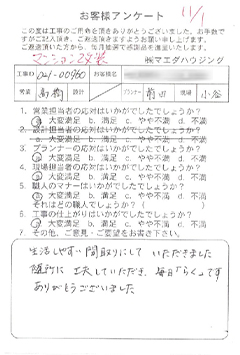 お客様アンケート
11/1
この度は工事のご用命を頂きありがとうございました。お手数で
すがご記入頂き、ご返送頂きますようお願い申し上げます。
ご返送頂いた方から、毎月抽選で感謝品を進呈いたします。
マンション改装
㈱マエダハウジング
工事ID 021-00960 お客様名
営業 高樹 設計 プランナー 前田 現場 小谷
1. 営業担当者の応対はいかがでしたでしょうか?
a. 大変満足 b. 満足 c. やや不満 d. 不満
2. 設計担当者の応対はいかがでしたでしょうか?
a. 大変満足 b. 満足 c. やや不満 d. 不満
3. プランナーの応対はいかがでしたでしょうか?
a. 大変満足 b. 満足 c. やや不満 d. 不満
4. 現場担当者の応対はいかがでしたでしょうか?
a. 大変満足 b. 満足 c. やや不満 d. 不満
5. 職人のマナーはいかがでしたでしょうか?
a. 大変満足 b. 満足 c. やや不満 d. 不満
それはどの職人でしょうか? ( )
6. 工事の仕上がりはいかがでしたでしょうか?
a. 大変満足 b. 満足 c. やや不満 d. 不満
7. その他、ご意見・ご要望をお書き下さい。
生活しやすい間取りにして いただきました
随所に 工夫していただき、毎日「らく」です
ありがとうございました